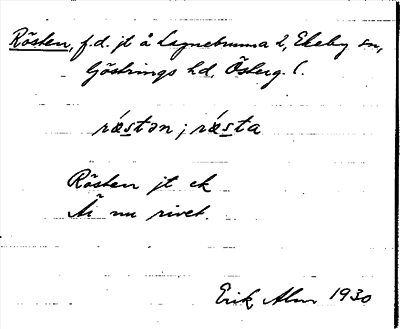 Rösten, f.d. jt å Lagnebrunna 2, Ekeby sn,
Göstrings hd, Österg. l.
ræ̀stən ; ræ̀sta
Rösten jt ek
Är nu rivet.
Erik Alm 1930